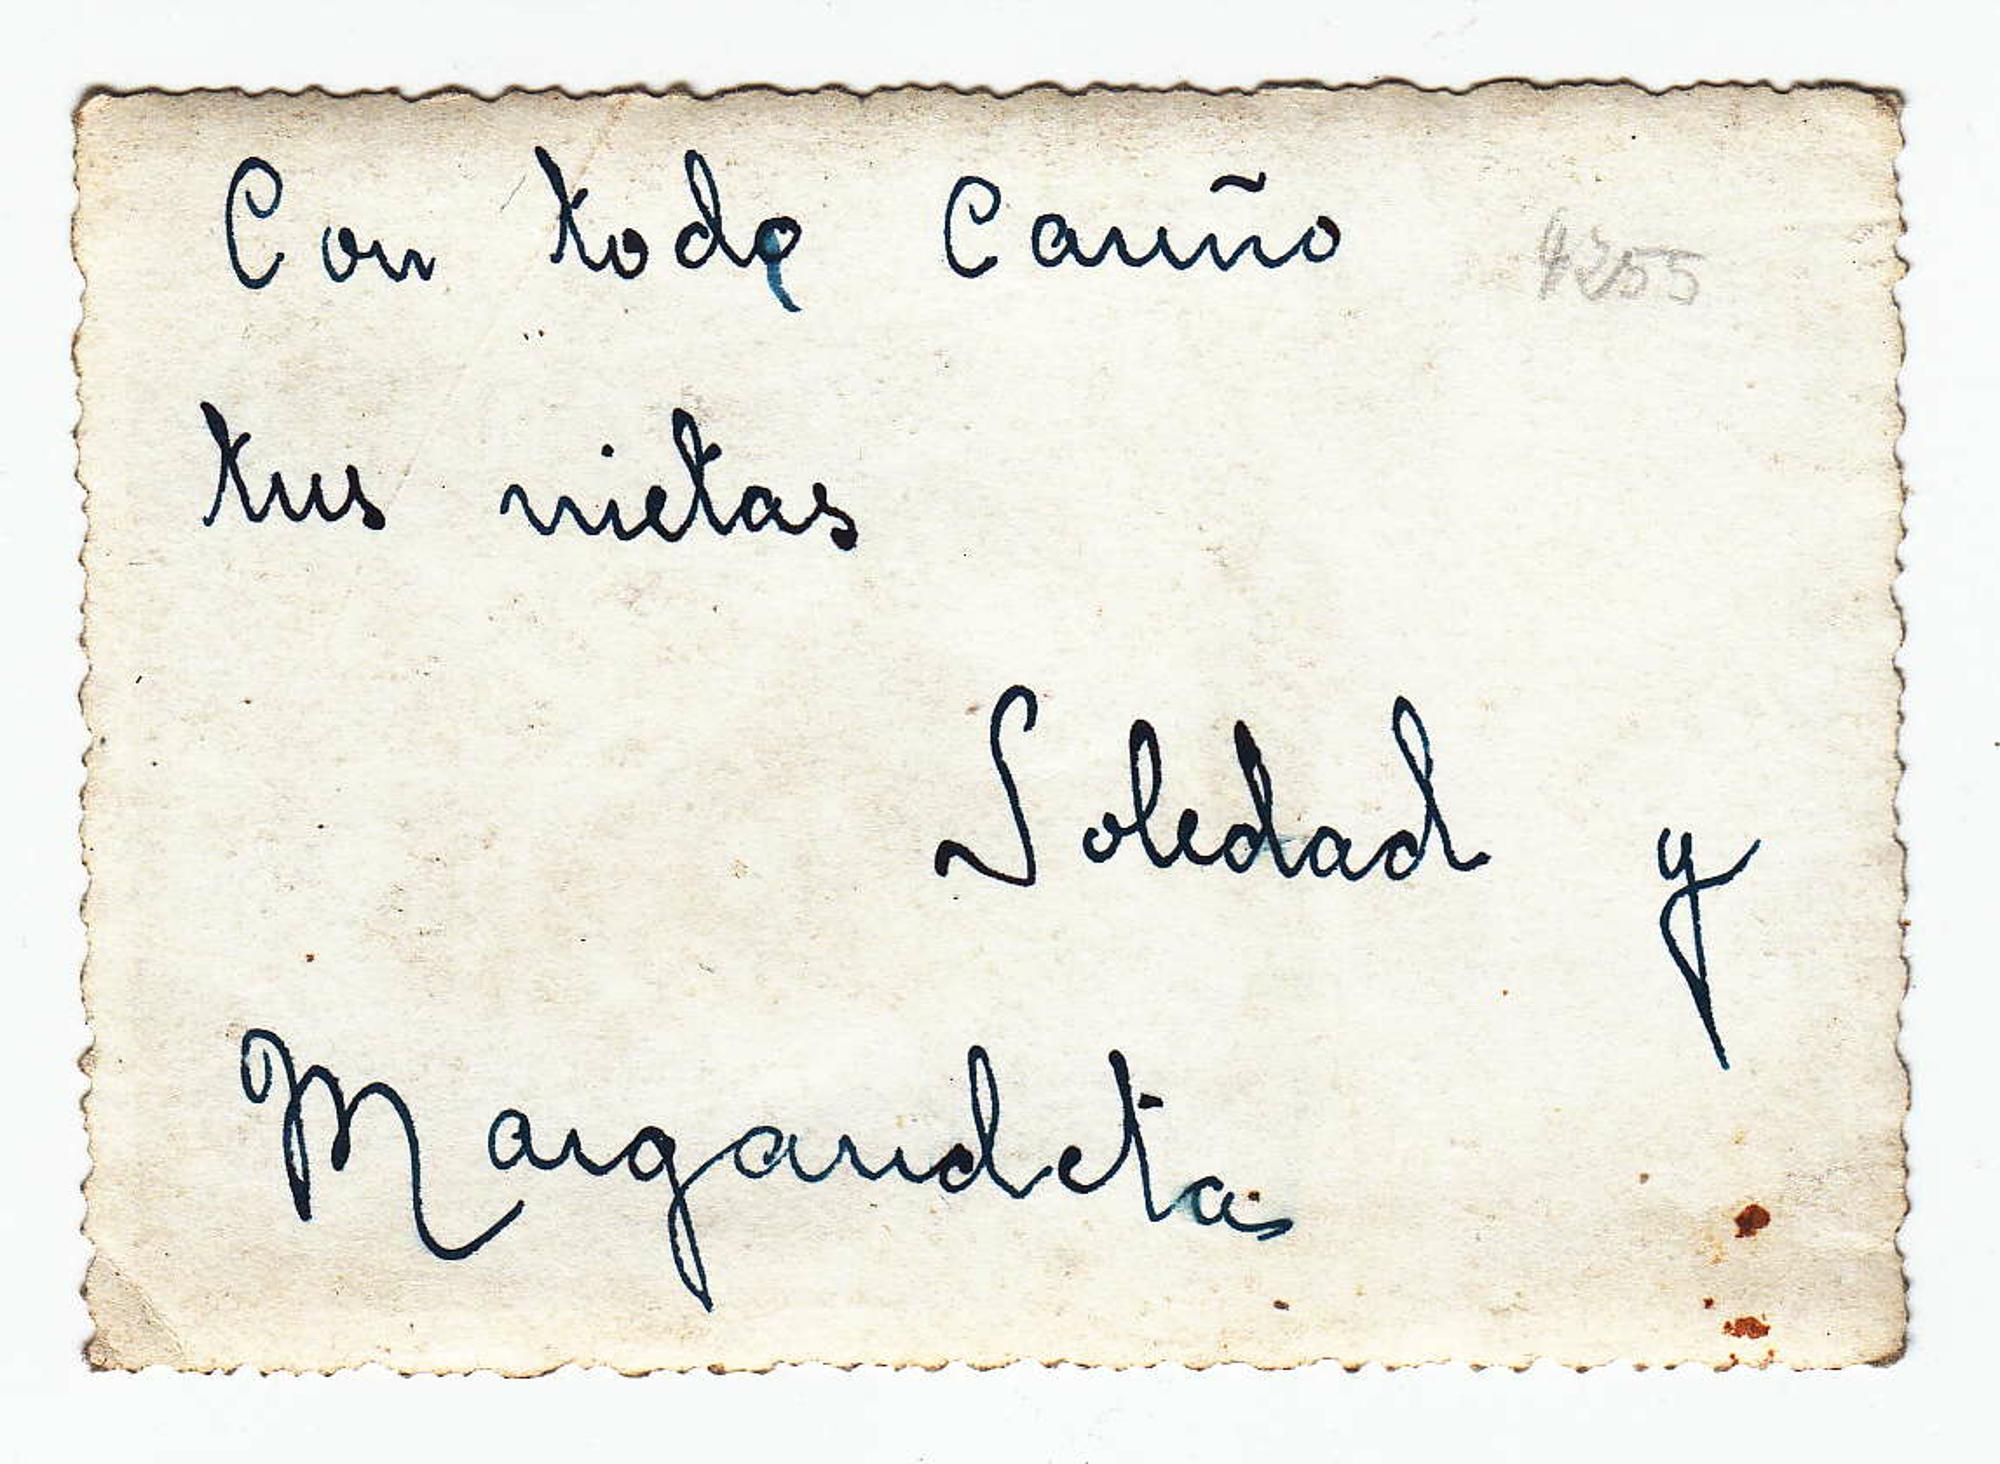 Con todo Cariño 4255
tus nietas
Soledad y
Margarideta